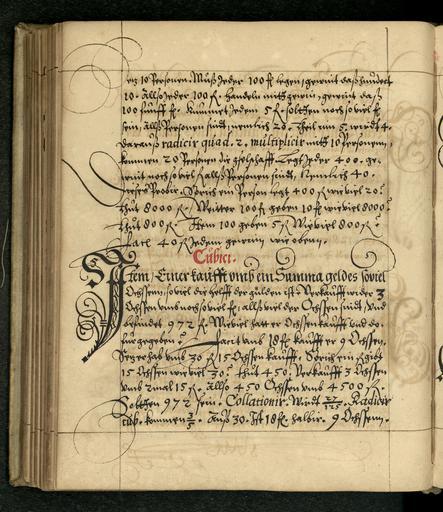 10 Personen. Muß Jeder 100 fl legen, gewint das hundert
10. Also Jeder 100 fl. handeln mitt gewin, gewint das
100 fünff fl. Kummet Jedem 5 fl. solchen noch so viel
sein, alls Personen sindt, nemlich 20. Theil inn 5 wirdt 4.
daraus radicir quad. 2. multiplicir mitt 10 Personen,
kommen 20 Personen die gselschafft. Legt Jeder 400. ge-
wint noch so viel fl alls Personen sindt, nemlich 40.
Probir. Sprich ein Person legt 400 fl wieviel 20?
thut 8000 fl. Weitter 100 fl geben 10 fl wieviel 8000?
thut 800 fl. Item 100 geben 5 fl Wieviel 800 fl.
facit 40 fl Jedem gewin wie oben.
Cubici.
Item, Einer kaufft umb ein Summa geldes soviel
Ochssenn, soviel die helfft der gülden ist. Verkaufft ie der 3
Ochssen umb noch soviel fl, alls viel der Ochssen sindt, Und
befindet 972 fl. Wieviel hatt er Ochssen kaufft und do-
für gegeben? Facit umb 18 fl kaufft er 9 Ochssen.
Setze er hab umb 30 fl 15 Ochssen kaufft. Sprich ein fl gibt
15 Ochssen wieviel 30? thut 450. Verkaufft 3 Ochssen
umb 2 mal 15 fl. Also 450 Ochssen umb 4500 fl.
Solten 972 sein. Collationir. Wirdt 27/125. Radicir
cub. kommen 3/5. Auß 30. Ist 18 fl halbir. 9 Ochssenn.